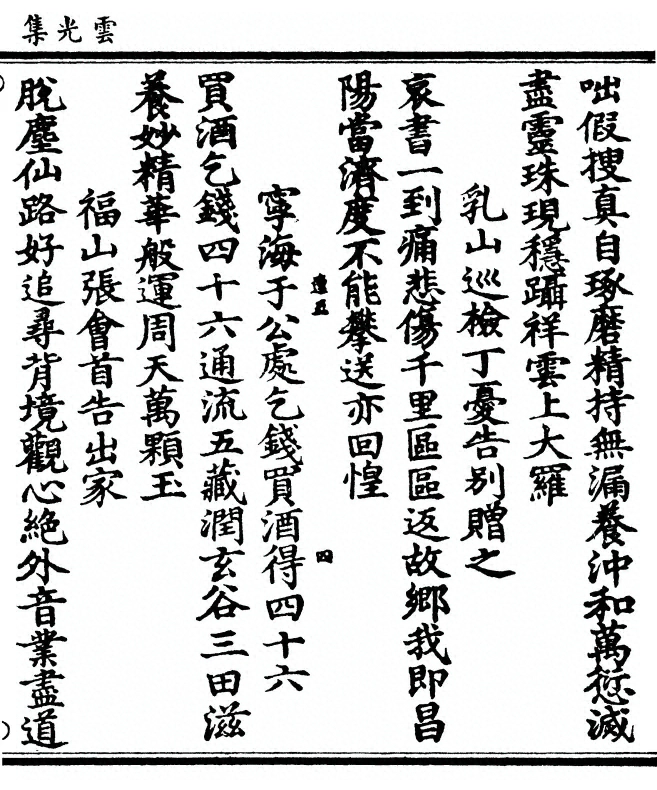 雲光集
咄假搜真自琢磨精持無漏養沖和萬愆滅
盡靈珠現穩躡祥雲上大羅
乳山巡檢丁憂告別贈之
哀書一到痛悲傷千里區區返故鄉我即昌
陽當濟度不能攀送亦回惶
寧海于公處乞錢買酒得四十六
逢五
四
買酒乞錢四十六通流五藏潤玄谷三田滋
養妙精華般運周天萬顆玉
福山張會首告出家
脫塵仙路好追尋背境觀心絕外音業盡道